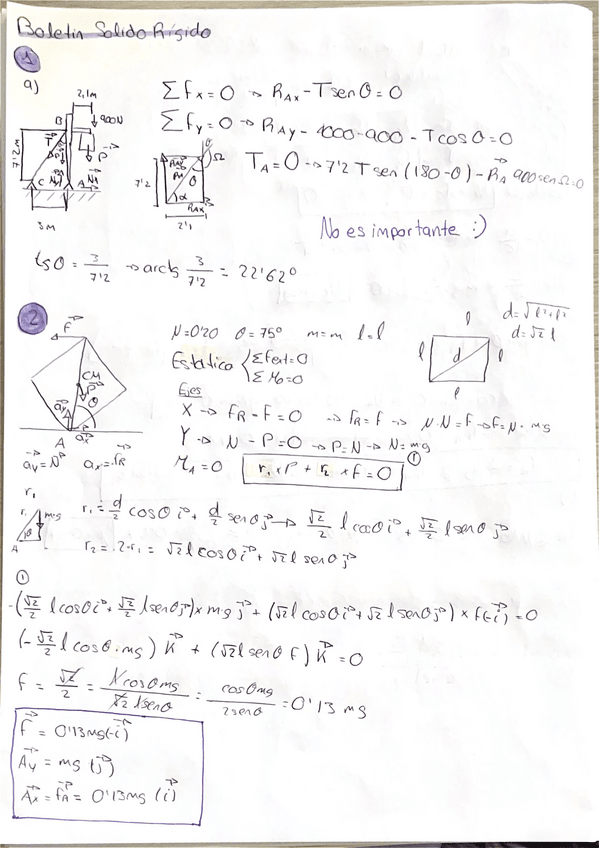 Boletín Solido Rígido
1
a)
2,1m
B
900N
T
P
7'2m
C
A
3m
7'2
Ω
θ
α
RAx
2'1
Σfx=0 → RAx - T sen θ = 0
Σfy=0 → RAy - 1000-900 - T cos θ = 0
TA = 0 → 7'2 T sen (180-θ) - RA 900 sen Ω=0
No es importante :)
tgθ = 3/7'2 → arctg 3/7'2 = 22'62º
2
F
CM
P
θ
ay
A
ax
ay = N ax = fR
μ=0'20 θ = 75º m=m l=l
Estática { Σfext=0
Σ Mo=0
Ejes
X → fR - F = 0 → fR = f → μ·N=F → f=μ·mg
Y → N - P=0 → P=N → N=mg
MA=0 r1 x P + r2 x f = 0 ①
l
l d l
l
d=√l²+l²
d=√2 l
r1
r1 mg
A θ
r1 = d/2 cosθ i + d/2 senθ j → √2/2 l cosθ i + √2/2 l senθ j
r2 = 2·r1 = √2 l cosθ i + √2 l senθ j
①
-(√2/2 l cosθ i + √2/2 l senθ j) x mg j + (√2 l cosθ i + √2 l senθ j) x f(-i) = 0
(-√2/2 l cosθ·mg) K + (√2 l senθ f) K = 0
f = √2/2 = l cosθ mg/√2 l senθ = cosθ mg/2senθ = 0'13 mg
f = 0'13mg(-i)
Ay = mg (j)
Ax = fR = 0'13mg (i)